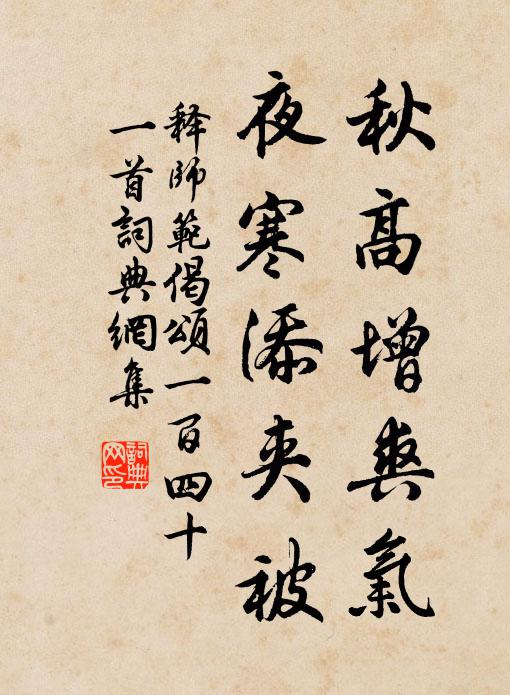 秋高增爽氣
夜寒添夾被
释師範偈頌一百四十
一首詞典網集
詞典网印